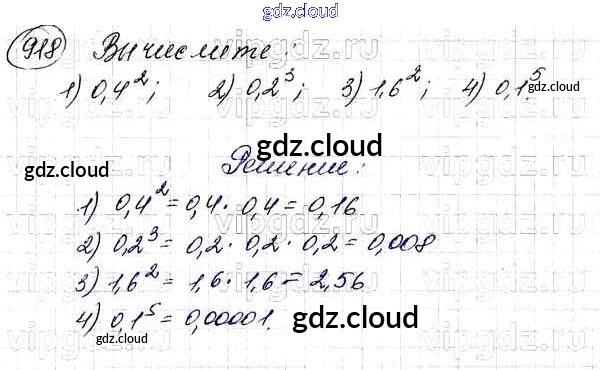 gdz.cloud
918 Вычислите:
1) 0,4²; 2) 0,2³; 3) 1,6²; 4) 0,1⁵.
gdz.cloud
gdz.cloud
gdz.cloud
Решение:
1) 0,4² = 0,4 · 0,4 = 0,16
2) 0,2³ = 0,2 · 0,2 · 0,2 = 0,008
3) 1,6² = 1,6 · 1,6 = 2,56
4) 0,1⁵ = 0,00001.
gdz.cloud
gdz.cloud
vipgdz.ru